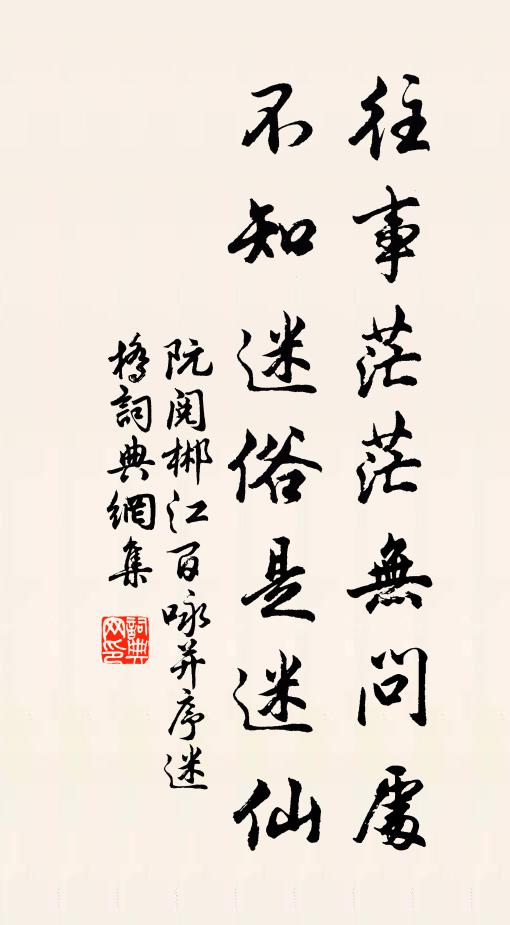 往事茫茫無問處
不知迷俗是迷仙
阮閱郴江百咏并序迷
橋詞典網集
詞典网印